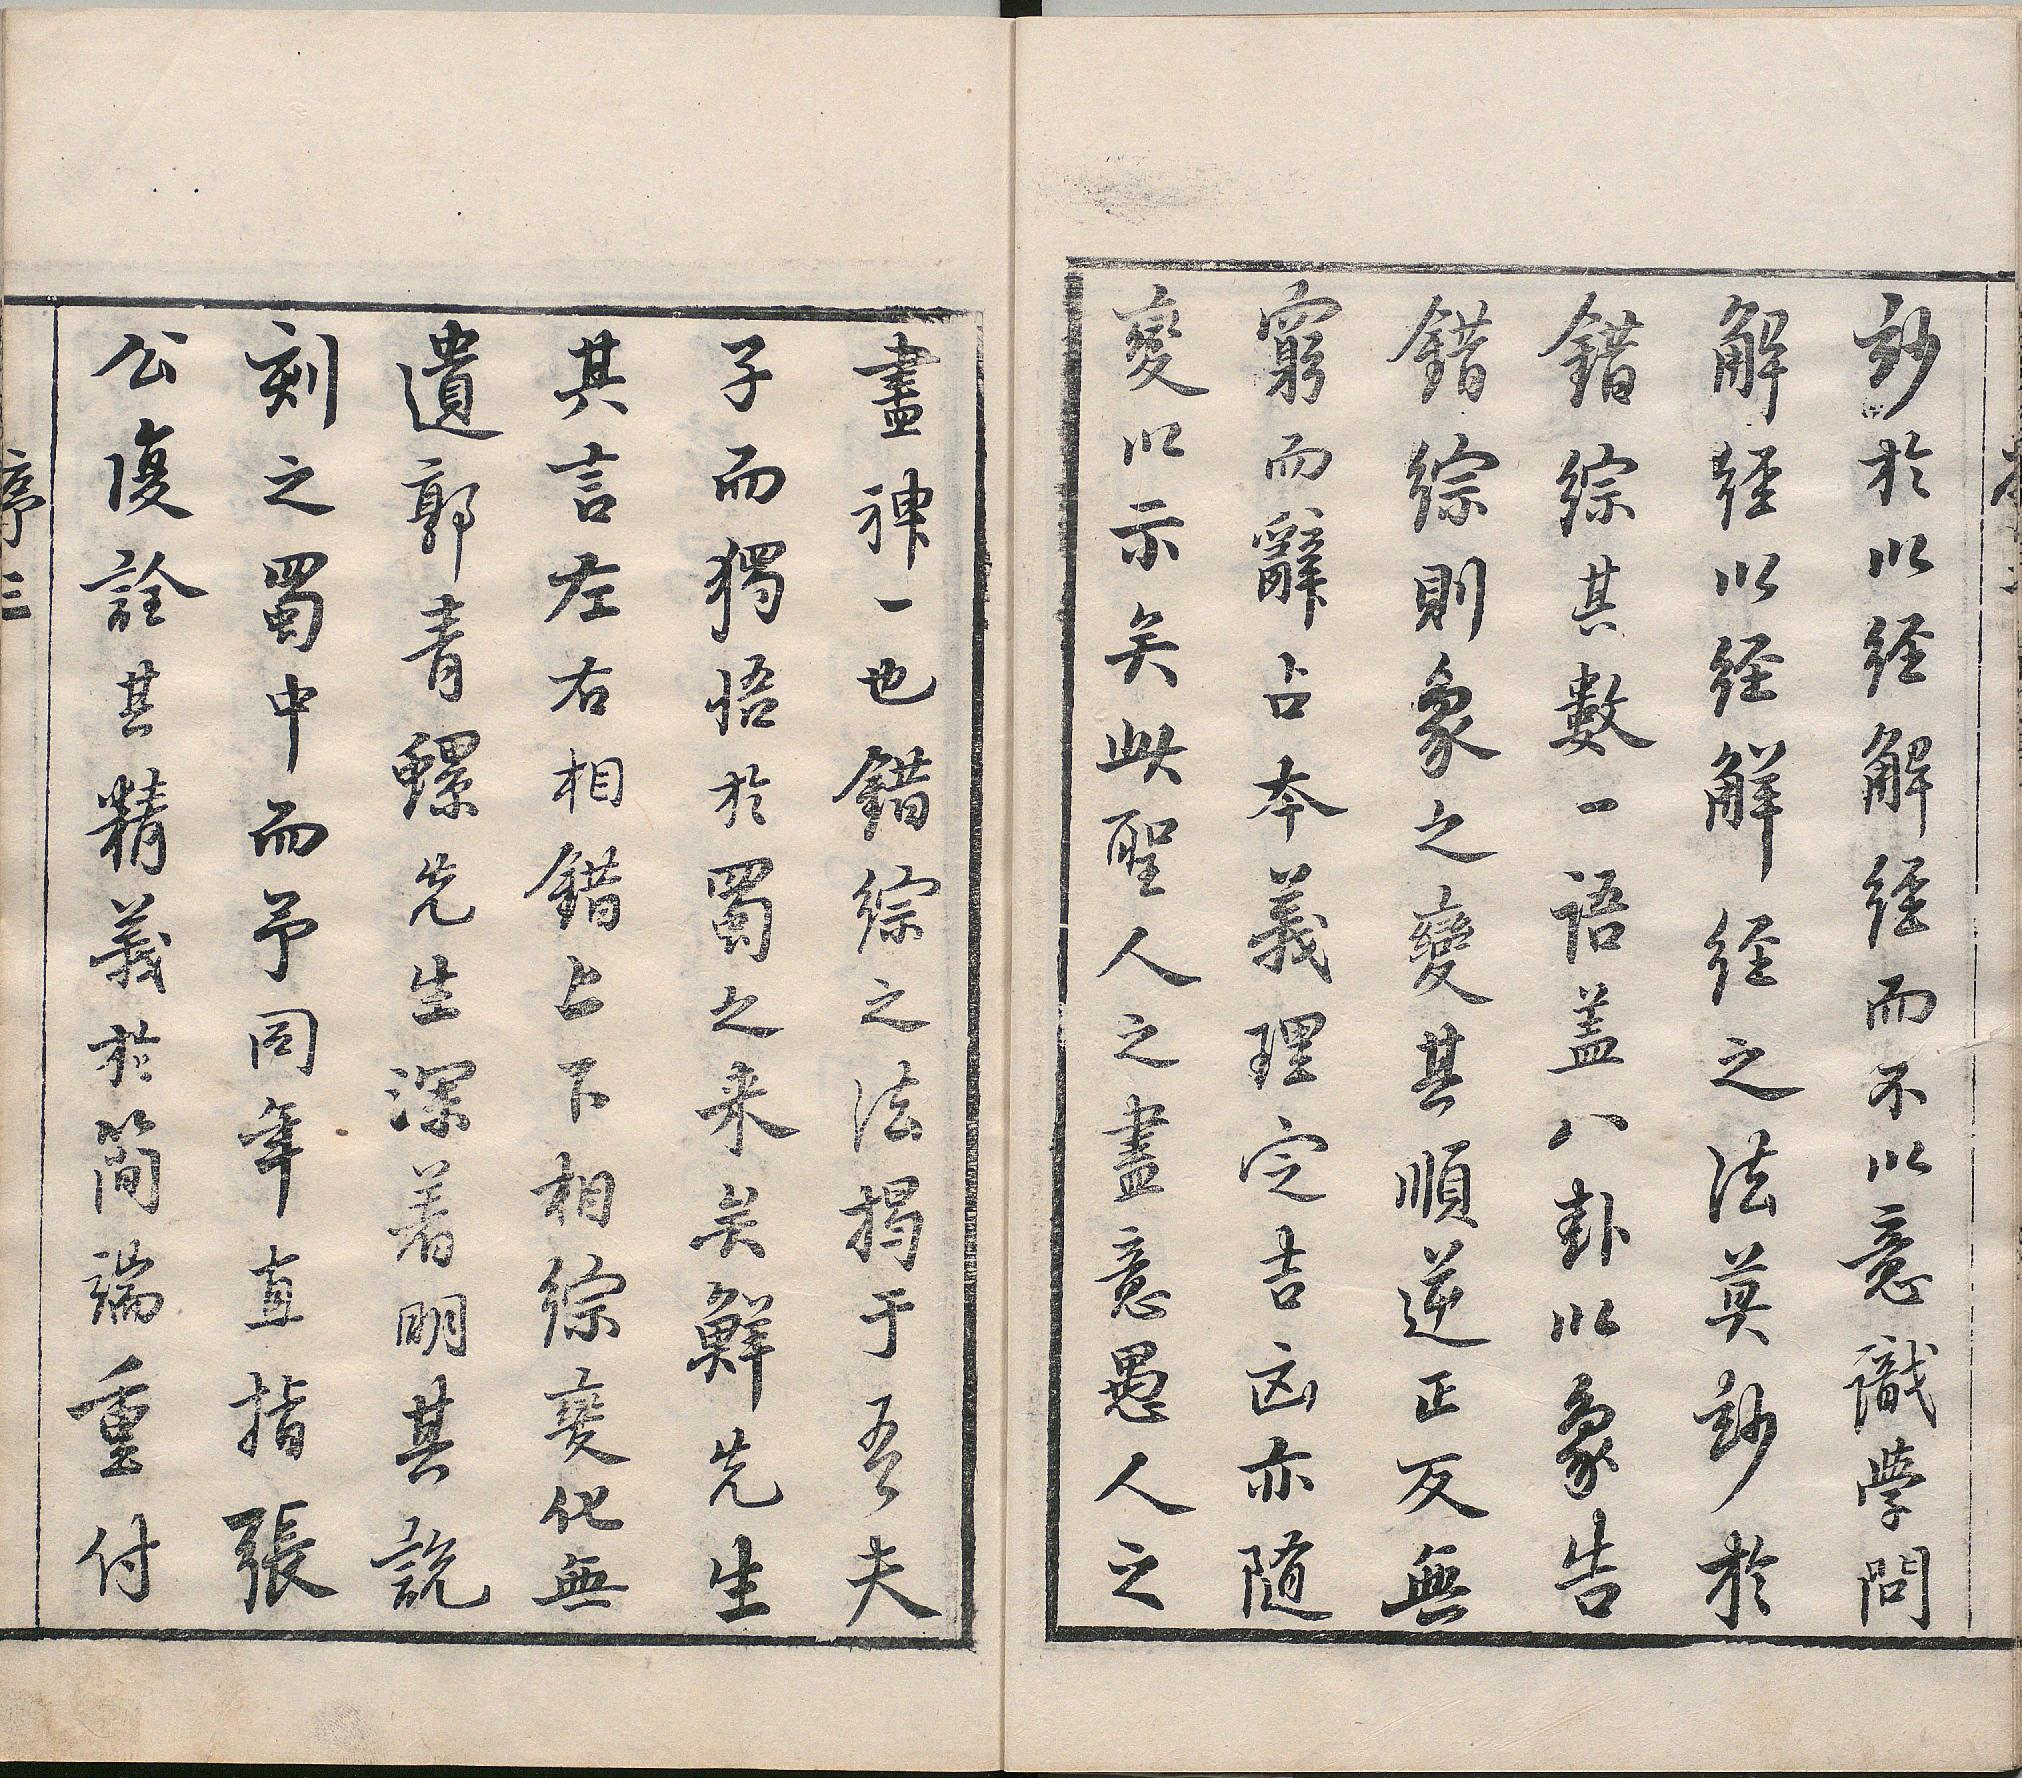 玅於以经解经而不以意識學問
解经以经解经之法莫玅於
錯綜其數一語盖八卦以象告
錯綜則象之變其順逆正反無
窮而辭占本義理定吉凶亦随
变以示矣此聖人之盡意愚人之
盡神一也錯綜之法揭于吾夫
子而獨悟於蜀之来矣鮮先生
其言左右相錯上下相綜变化無
遺郭青螺先生深着明其説
刻之蜀中而予同年直指張
公復詮其精義於简端重付
序 三